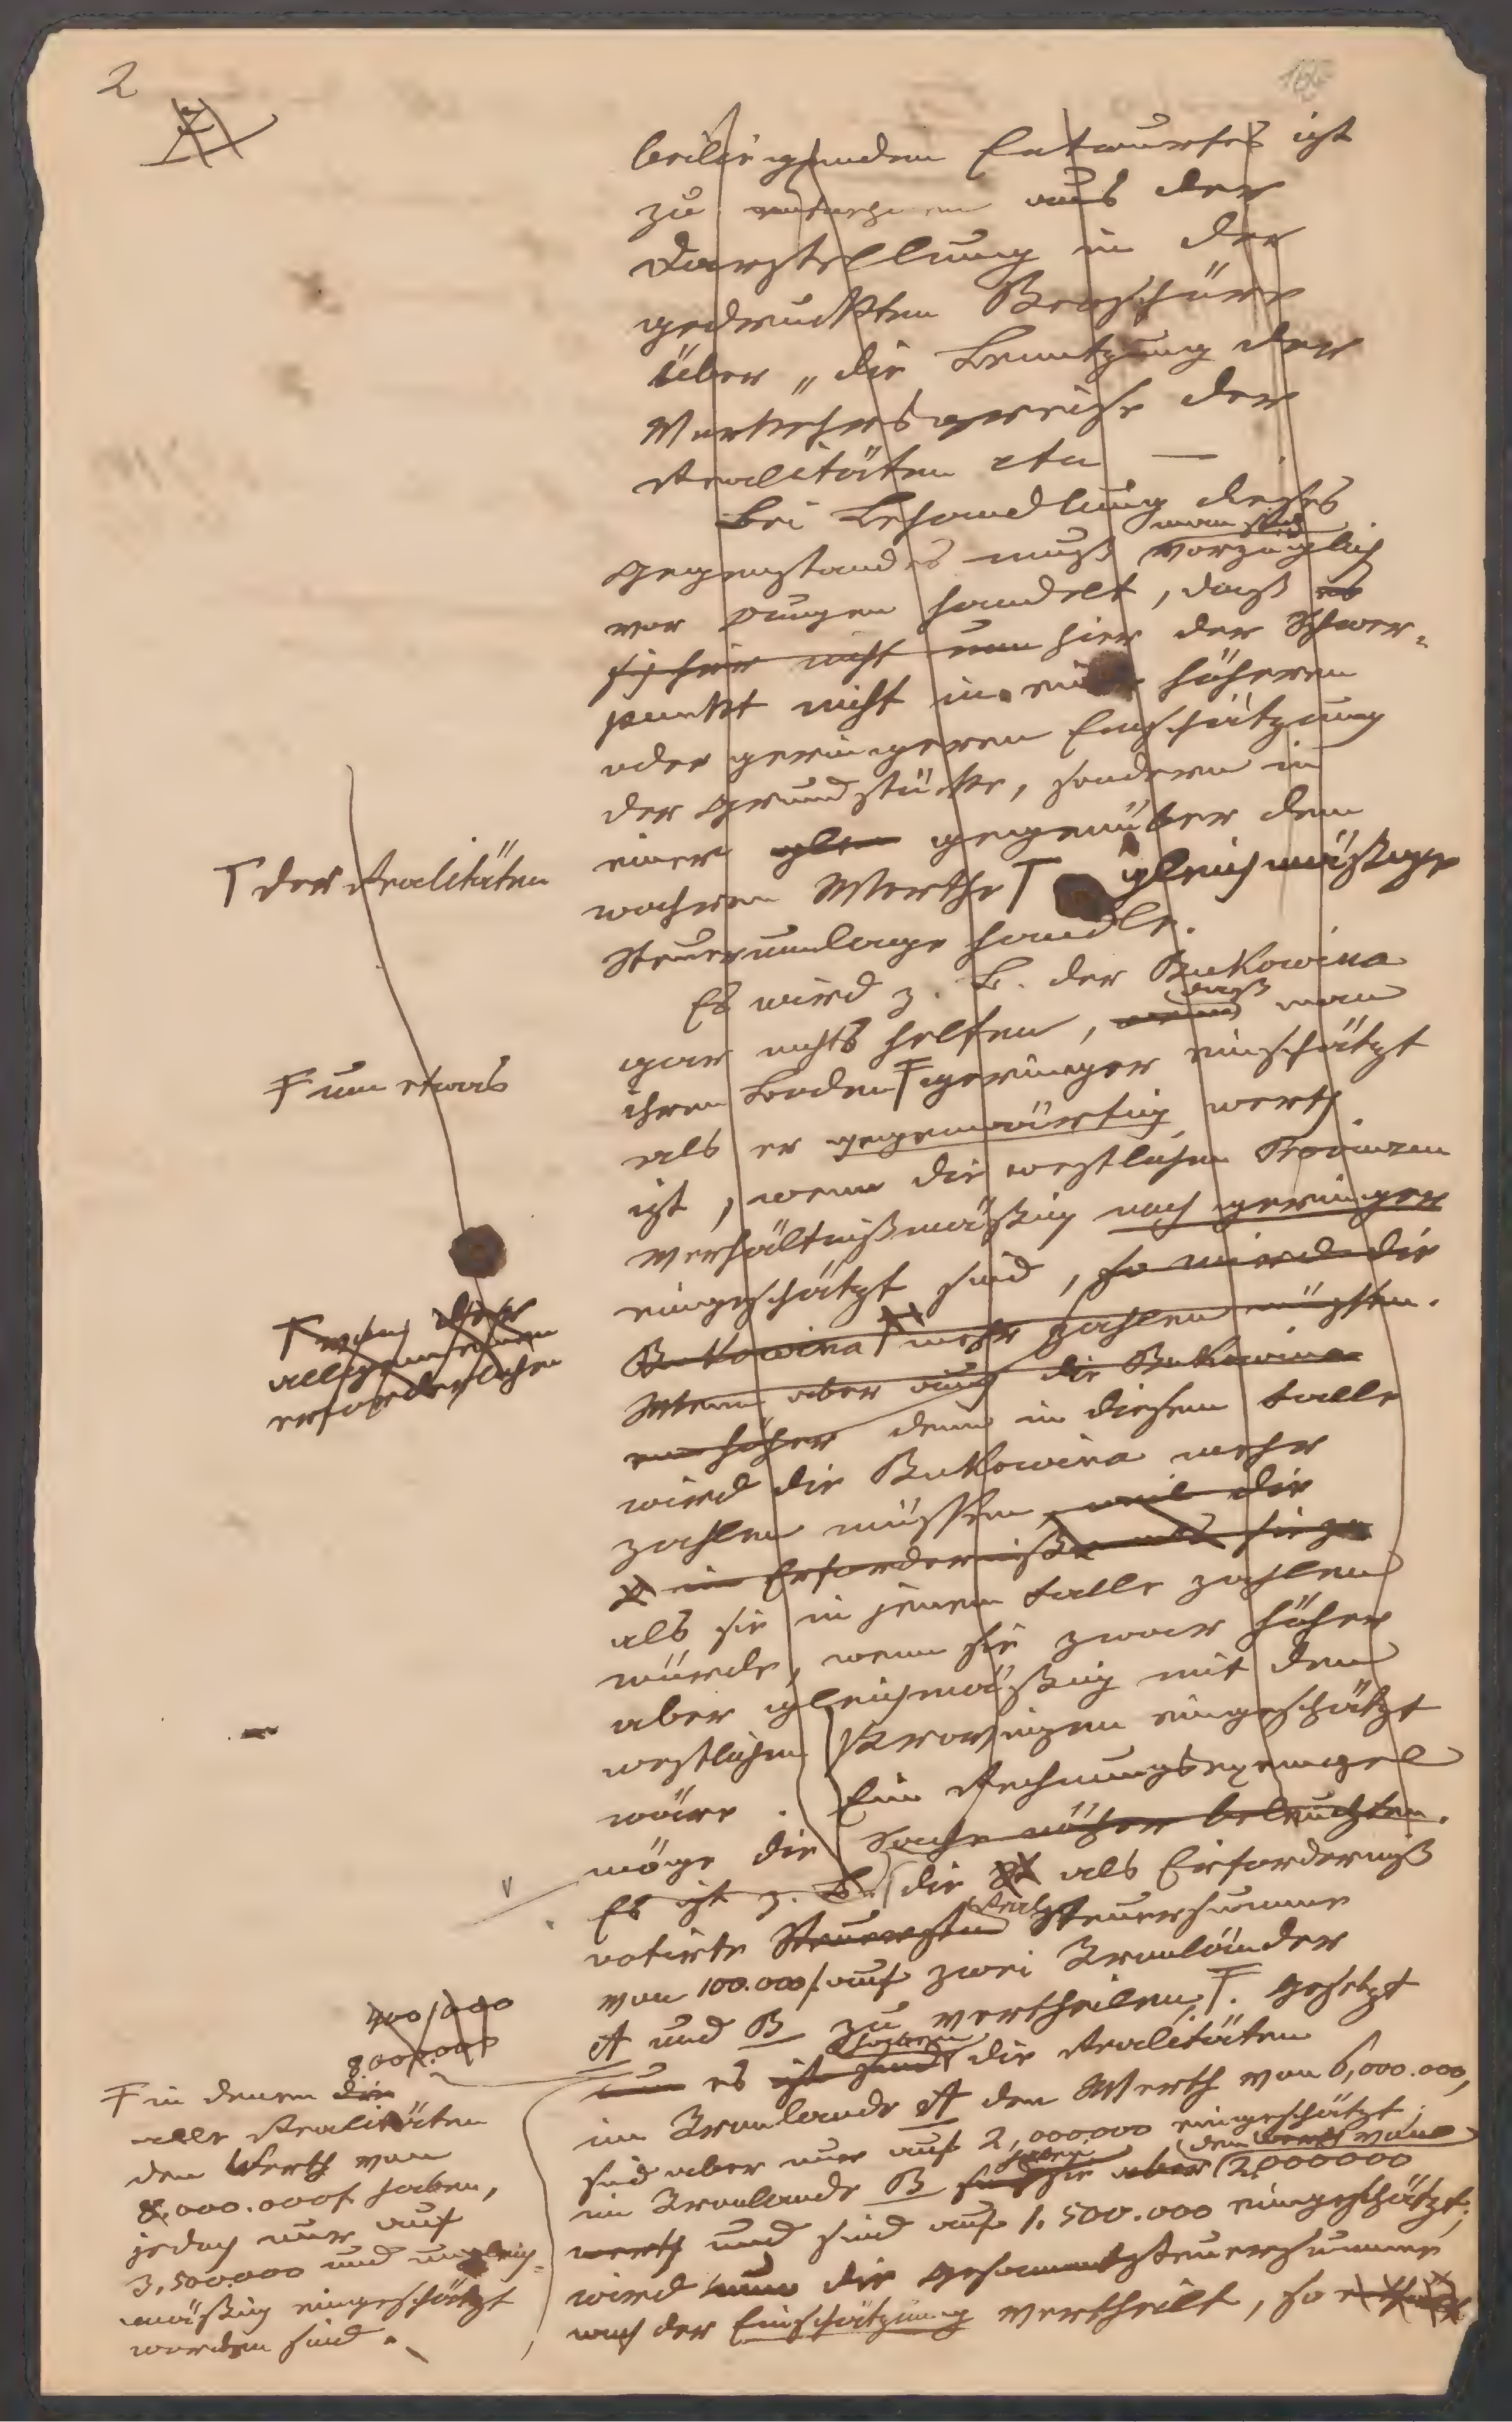 2
beiliegenden Entwurfes ist
zu entnehmen aus der
Darstellung in der
gedruckten Broschüre
über „die Benützung der
Verkehrspreise der
Realitäten etc —
Bei Behandlung dieses
Gegenstandes muß man sich vorzüglich
vor Augen handelt, daß es
sich hier nicht um hier der Schwer-
punkt nicht in einer höheren
oder geringeren Einschätzung
der Grundstücke, sondern in
einer gegenüber dem
wahren Werthe Ƭ gleichmäßige
Ƭ der Realitäten
Steuerumlage handle.
Es wird z. B. der Bukowina
gar nichts helfen, wenn daß man
ihren Boden Ŧ geringer einschätzt
Ŧ um etwas
als er gegenwärtig werth
ist, wenn die westlichen Provinzen
verhältnißmäßig noch geringer
eingeschätzt sind, so wird die
Bukowina mehr zahlen müssen.
allgemeinen
erforderlichen
Wenn aber auch die Bukowina
höher denn in diesem Falle
wird die Bukowina mehr
zahlen müssen, weil die
ein Erforderniße
als sie in jenem Falle zahlen
würde, wenn sie zwar höher
aber gleichmäßig mit den
westlichen Provinzen eingeschätzt
wäre. Ein Rechnungsexempel
möge die Sache näher beleuchten.
Es ist z. B. die als Erforderniß
votirte Real Steuersumme
von 100.000 f. auf zwei Kronländer
A und B zu vertheilen, Ŧ. Gesetzt
es ist haben die Realitäten
im Kronlande A den Werth von 6,000.000,
sind aber nur auf 2,000000 eingeschätzt;
im Kronlande B haben sie aber den Werth von 2,000000
werth und sind auf 1.500.000 eingeschätzt;
wird nun die Gesammtsteuersumme
nach der Einschätzung vertheilt, so
400/000
800/000
Ŧ in denen die
alle Realitäten
den Werth von
8,000.000 f haben,
jedoch nur auf
3,500.000 und ungleich-
mäßig eingeschätzt
worden sind.